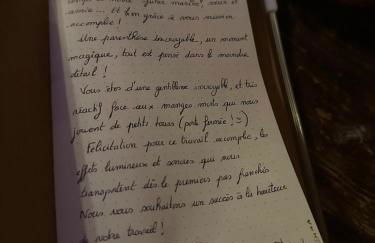 amie... Et bien grâce à vous mission
accomplie !
Une parenthèse incroyable, un moment
magique, tout est pensé dans le moindre
détail !
Vous êtes d'une gentillesse incroyable, et très
réactif face aux manges mots qui nous
jouent de petits tours (porte fermée ! :)
Félicitation pour ce travail accomplie, les
effets lumineux et sonores qui nous
transportent dès le premiers pas franchis
Nous vous souhaitons un succès à la hauteur
de votre travail !